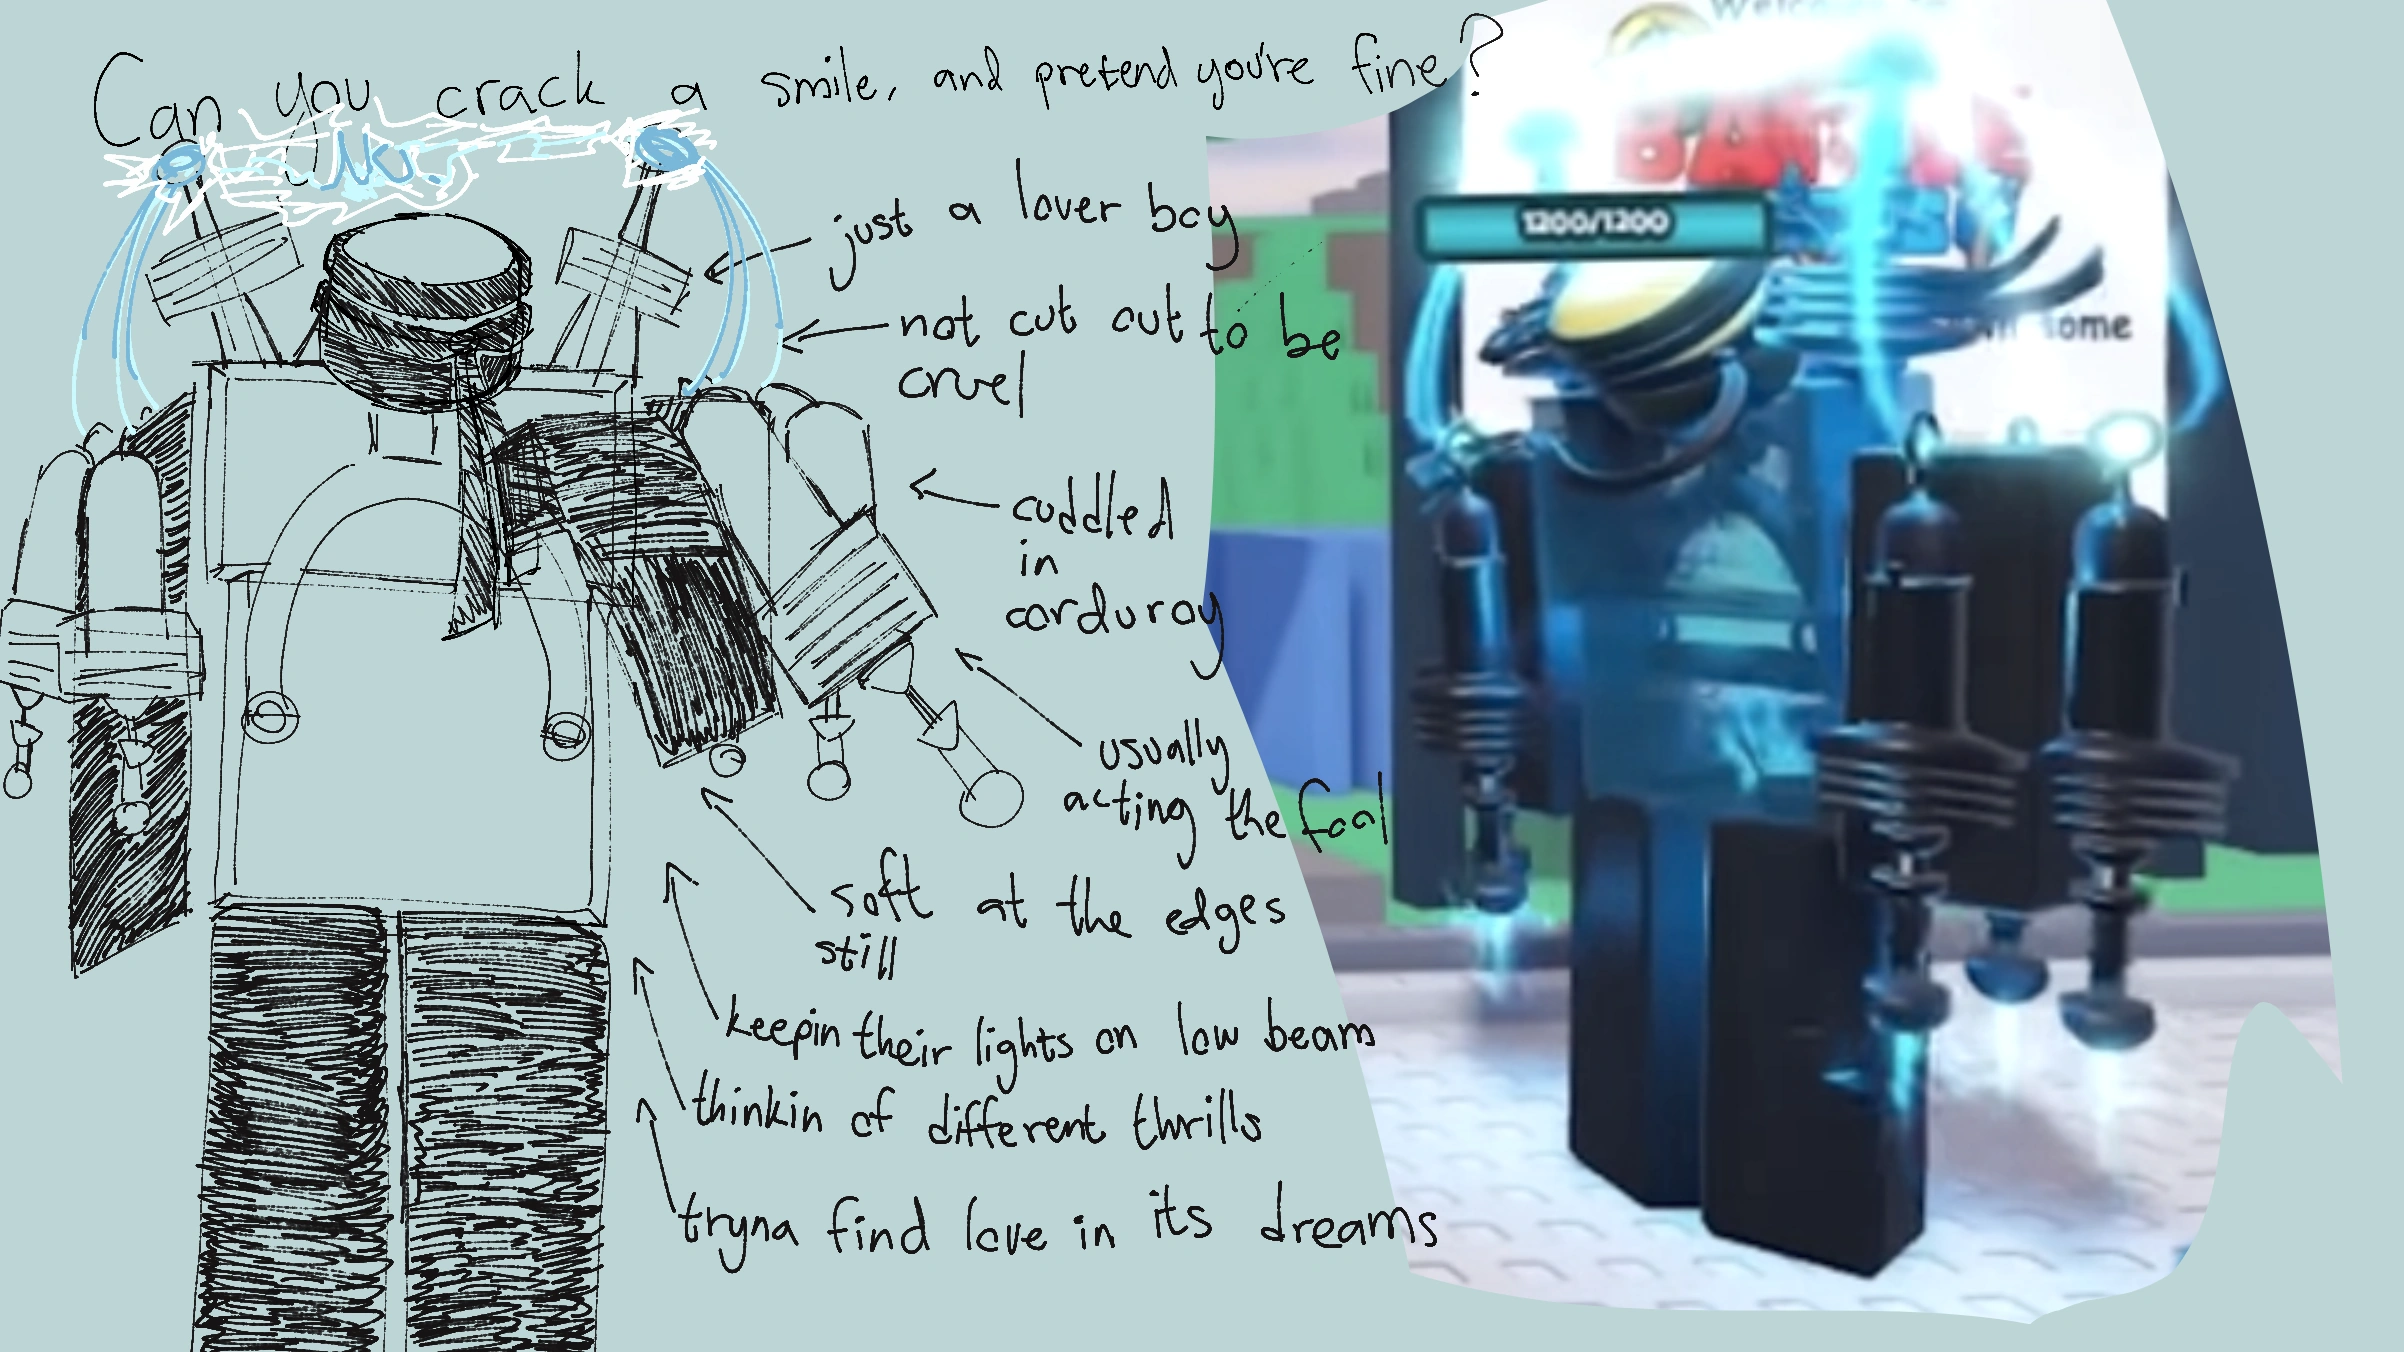 Can you crack a smile, and pretend you're fine?
No.
just a lover boy
not cut out to be
cruel
cuddled
in
corduroy
usually
acting the fool
soft at the edges
still
keepin their lights on low beam
thinkin of different thrills
tryna find love in its dreams
1200/1200